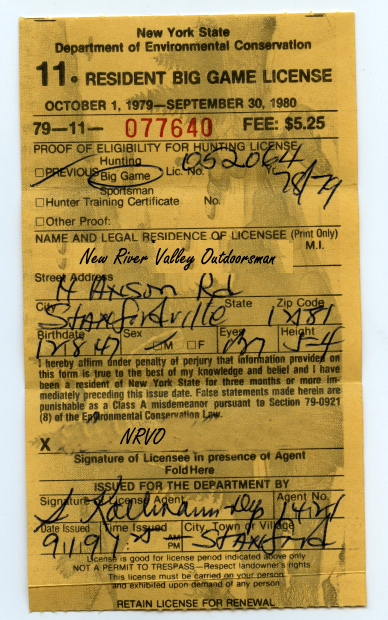 New York State
Department of Environmental Conservation
11. RESIDENT BIG GAME LICENSE
OCTOBER 1, 1979—SEPTEMBER 30, 1980
79—11— 077640 FEE: $5.25
PROOF OF ELIGIBILITY FOR HUNTING LICENSE
Hunting
□PREVIOUS Big Game Lic. No. 052064
Sportsman 78/79
□Hunter Training Certificate No.
□Other Proof:
NAME AND LEGAL RESIDENCE OF LICENSEE (Print Only)
M.I.
New River Valley Outdoorsman
Street Address
Rd
City State Zip Code
Stanfordville 12581
Birthdate Sex □M □F Eyes Height
12 8 47 5-4
I hereby affirm under penalty of perjury that information provided on
this form is true to the best of my knowledge and belief and I have
been a resident of New York State for three months or more im-
mediately preceding this issue date. False statements made herein are
punishable as a Class A misdemeanor pursuant to Section 79-0921
(8) of the Environmental Conservation Law.
X NRVO
Signature of Licensee in presence of Agent
Fold Here
ISSUED FOR THE DEPARTMENT BY
Signature License Agent Agent No.
Date Issued Time Issued AM PM City, Town of Village
Stanford
License is good for license period indicated above only
NOT A PERMIT TO TRESPASS—Respect landowner's rights
This license must be carried on your person
and exhibited upon demand of any person
RETAIN LICENSE FOR RENEWAL